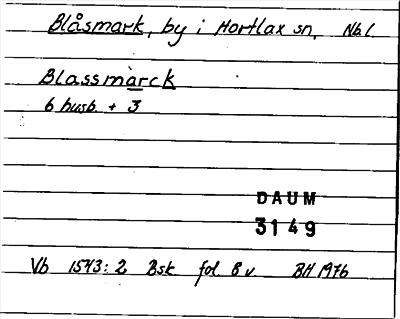 Blåsmark, by i Hortlax sn, Nb.l
Blassmarck
6 husb. + 3
DAUM
3149
Vb 1543:2 Bsk fol 8v. BH 1976